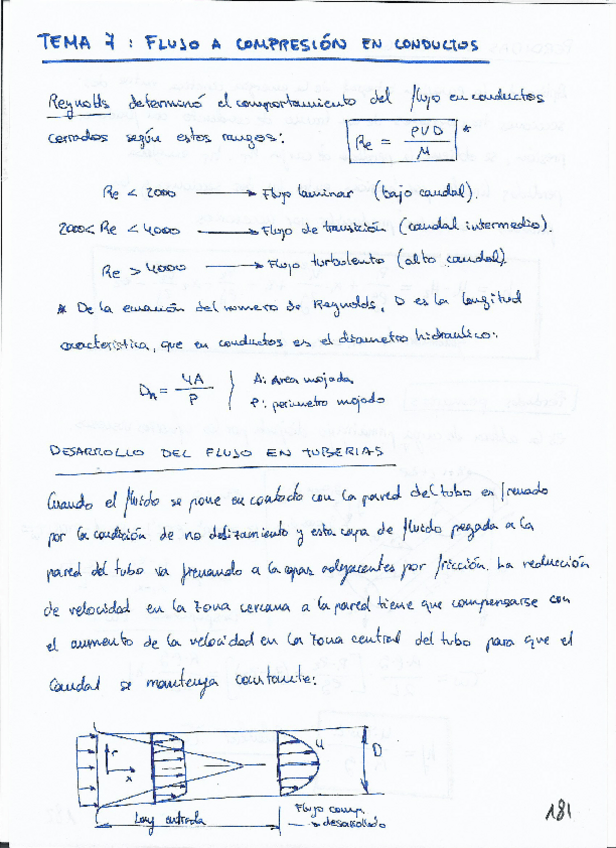 TEMA 7 : FLUJO A COMPRESIÓN EN CONDUCTOS
Reynolds determinó el comportamiento del flujo en conductos
cerrados según estos rangos: Re = ρVD / μ *
Re < 2000 → Flujo laminar (bajo caudal).
2000 < Re < 4000 → Flujo de transición (caudal intermedio).
Re > 4000 → Flujo turbulento (alto caudal).
* De la ecuación del número de Reynolds, D es la longitud
característica, que en conductos es el diámetro hidraúlico:
Dh = 4A / P } A: Area mojada
P: perimetro mojado
DESARROLLO DEL FLUJO EN TUBERIAS
Cuando el fluido se pone en contacto con la pared del tubo es frenado
por la condición de no deslizamiento y esta capa de fluido pegada a la
pared del tubo va frenando a la capas adyacentes por fricción. La reducción
de velocidad en la zona cercana a la pared tiene que compensarse con
el aumento de la velocidad en la zona central del tubo para que el
caudal se mantenga constante:
r x u D
Long entrada
Flujo comp.
→ desarrollado
181